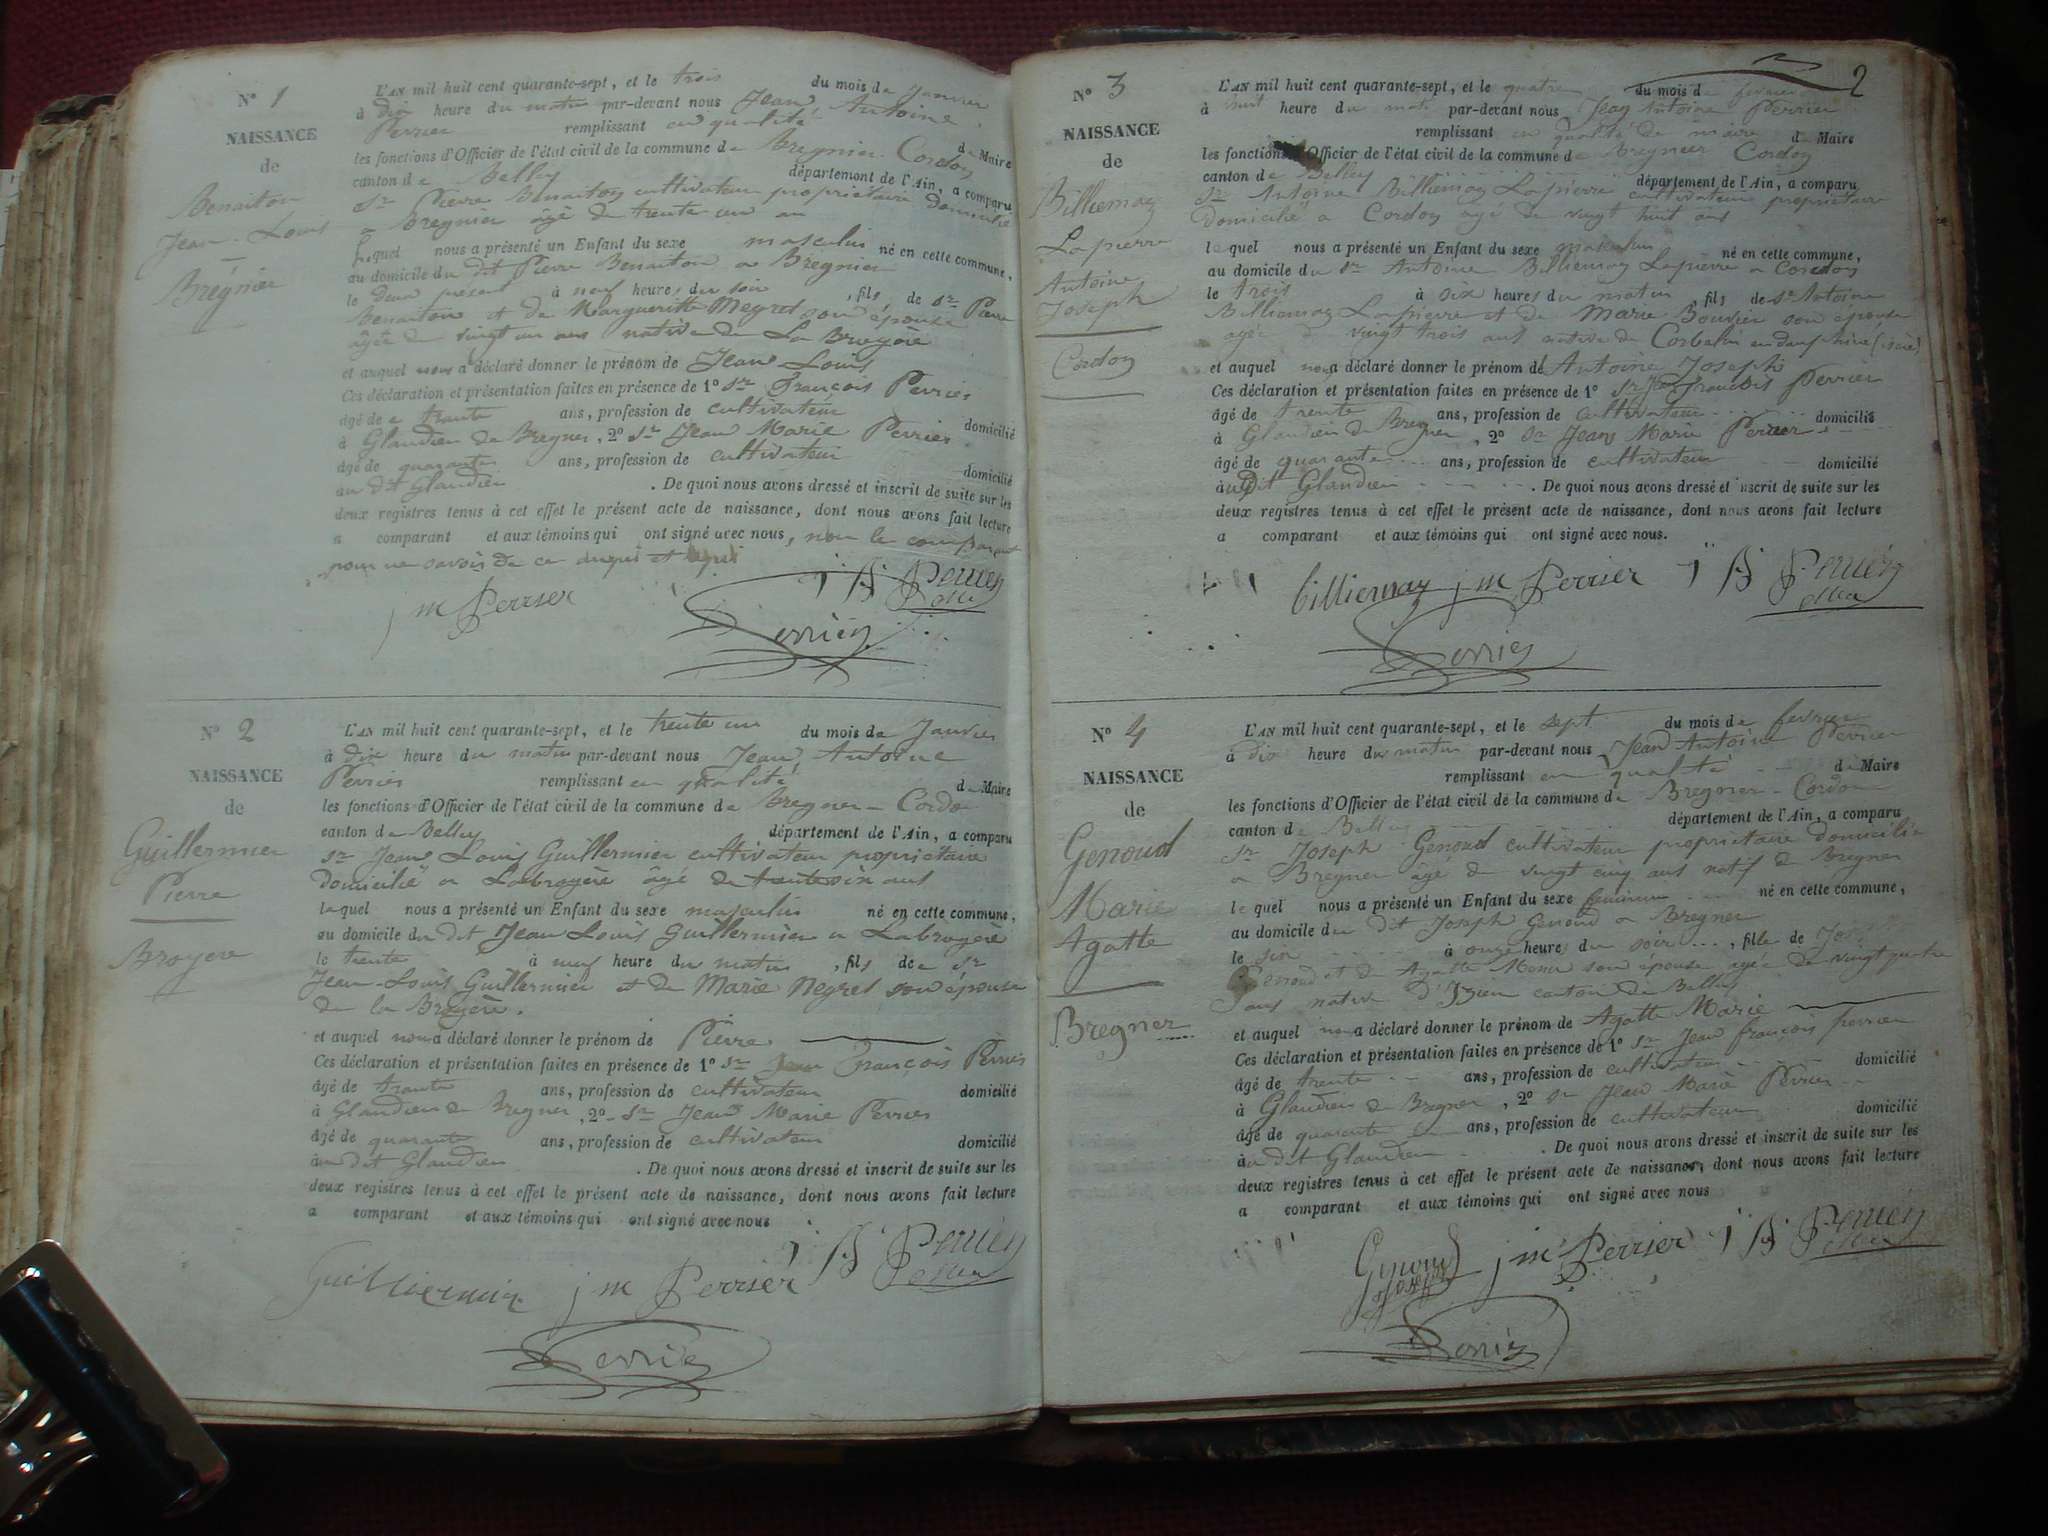 N° 1
NAISSANCE
de
Benaiton
Jean-Louis
Brégnier
L'AN mil huit cent quarante-sept, et le trois du mois de janvier
à dix heure du matin par-devant nous Jean Antoine
Perrier remplissant en qualité de Maire
les fonctions d'Officier de l'état civil de la commune de Bregnier-Cordon
canton de Belley département de l'Ain, a comparu
Sr Pierre Benaiton cultivateur propriétaire domicilié
a Bregnier âgé de trente un an
lequel nous a présenté un Enfant du sexe masculin né en cette commune,
au domicile du dit Pierre Benaiton a Bregnier
le deux présent à neuf heures du soir, fils de Sr Pierre
Benaiton et de Marguerite Meyret son épouse
âgée de vingt un ans native de La Bruyère
et auquel nous a déclaré donner le prénom de Jean Louis
Ces déclaration et présentation faites en présence de 1° Sr François Perrier
âgé de trante ans, profession de cultivateur domicilié
à Glandieu de Bregner, 2° Sr Jean Marie Perrier
âgé de quarante ans, profession de cultivateur domicilié
au dit Glandieu. De quoi nous avons dressé et inscrit de suite sur les
deux registres tenus à cet effet le présent acte de naissance, dont nous avons fait lecture
a comparant et aux témoins qui ont signé avec nous, non le comparant
pour ne savoir de ce enquis et
j m Perrier J A Perrier
Perrier
N° 2
NAISSANCE
de
Guillermier
Pierre
Broyere
L'AN mil huit cent quarante-sept, et le trente un du mois de Janvier
à dix heure du matin par-devant nous Jean Antoine
Perrier remplissant en qualité de Maire
les fonctions d'Officier de l'état civil de la commune de Bregner-Cordon
canton de Belley département de l'Ain, a comparu
Sr Jean Louis Guillermier cultivateur propriétaire
domicilié a Labroyère âgé de trante six ans
lequel nous a présenté un Enfant du sexe masculin né en cette commune,
au domicile du dit Jean Louis Guillermier a Labroyère
le trente à neuf heure du matin, fils de Sr
Jean-Louis Guillermier et de Marie Negret son épouse
de la Broyère.
et auquel nous a déclaré donner le prénom de Pierre
Ces déclaration et présentation faites en présence de 1° Sr Jean François Perrier
âgé de trante ans, profession de cultivateur domicilié
à Glandieu de Bregner, 2° Sr Jean Marie Perrier
âgé de quarante ans, profession de cultivateur domicilié
au dit Glandieu. De quoi nous avons dressé et inscrit de suite sur les
deux registres tenus à cet effet le présent acte de naissance, dont nous avons fait lecture
a comparant et aux témoins qui ont signé avec nous
Guilliermin j m Perrier J A Perrier
Perrier
2
N° 3
NAISSANCE
de
Billiemaz
Lapierre
Antoine
Joseph
Cordon
L'AN mil huit cent quarante-sept, et le quatre du mois de fevrier
à huit heure du matin par-devant nous Jean Antoine Perrier
remplissant en qualité de maire de Maire
les fonctions d'Officier de l'état civil de la commune de Bregnier Cordon
canton de Belley département de l'Ain, a comparu
Sr Antoine Billiemaz Lapierre cultivateur propriétaire
domicilié a Cordon agé de vingt huit ans
lequel nous a présenté un Enfant du sexe masculin né en cette commune,
au domicile du Sr Antoine Billiemaz Lapierre a Cordon
le trois à six heures du matin, fils de Sr Antoine
Billiemaz Lapierre et de Marie Bouvier son épouse
agée de vingt trois ans native de Corbelin en dauphiné (isère)
et auquel nous a déclaré donner le prénom de Antoine Joseph
Ces déclaration et présentation faites en présence de 1° Sr Jean François Perrier
âgé de trente ans, profession de cultivateur domicilié
à Glandieu de Bregner, 2° Sr Jean Marie Perrier
âgé de quarante ans, profession de cultivateur domicilié
au dit Glandieu. De quoi nous avons dressé et inscrit de suite sur les
deux registres tenus à cet effet le présent acte de naissance, dont nous avons fait lecture
a comparant et aux témoins qui ont signé avec nous.
billiemaz j m Perrier J A Perrier
Perrier
N° 4
NAISSANCE
de
Genoud
Marie
Agatte
Bregner
L'AN mil huit cent quarante-sept, et le sept du mois de fevrier
à dix heure du matin par-devant nous Jean Antoine Perrier
remplissant en qualité de Maire
les fonctions d'Officier de l'état civil de la commune de Bregner-Cordon
canton de Belley département de l'Ain, a comparu
Sr Joseph Genoud cultivateur propriétaire domicilié
a Bregner âgé de vingt cinq ans natif de Bregner
lequel nous a présenté un Enfant du sexe feminin né en cette commune,
au domicile du dit Joseph Genoud a Bregner
le six à onze heures du soir, fille de Joseph
Genoud et de Agatte son épouse agée de vingt quatre
ans native d'Izieu canton de Belley
et auquel nous a déclaré donner le prénom de Agatte Marie
Ces déclaration et présentation faites en présence de 1° Sr Jean françois perrier
âgé de trente ans, profession de cultivateur domicilié
à Glandieu de Bregner, 2° Sr Jean Marie Perrier
âgé de quarante ans, profession de cultivateur domicilié
au dit Glandieu. De quoi nous avons dressé et inscrit de suite sur les
deux registres tenus à cet effet le présent acte de naissance, dont nous avons fait lecture
a comparant et aux témoins qui ont signé avec nous
Genoud Joseph j m Perrier J A Perrier
Perrier